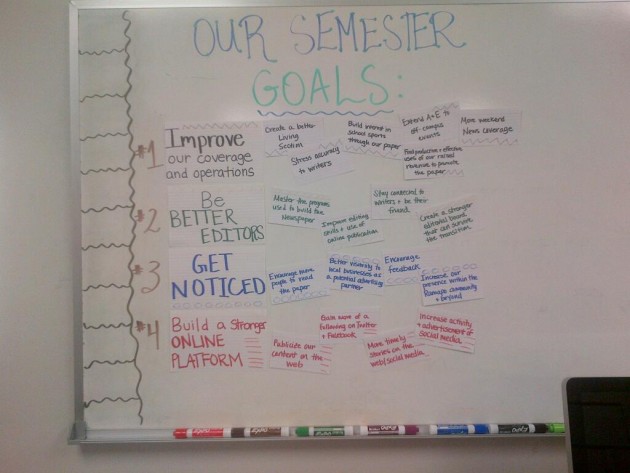 OUR SEMESTER
GOALS:
#1 Improve
our coverage
and operations
Create a better
Living
Section
Stress accuracy
to writers
Build interest in
school sports
through our paper
Expand A+E to
off-campus
Events
More weekend
News coverage
Find productive + effective
uses of our raised
revenues to promote
the paper
#2 Be
BETTER
EDITORS
Master the programs
used to build the
Newspaper
Improve editing
skills + use of
online publication
Stay connected to
writers + be their
friend
Create a stronger
editorial board
that can survive
the transition
#3 GET
NOTICED
Encourage more
people to read
the paper
Better
to
local businesses as
a potential advertising
partner
Encourage
feedback
Increase our
presence within the
Ramapo community
+ beyond
#4 Build a Stronger
ONLINE
PLATFORM
Publicize our
content on the
Web
Gain more of a
following on Twitter
+ Facebook
More timely
stories on the
web/social media
Increase activity
+ advertisement of
social media
EXPO